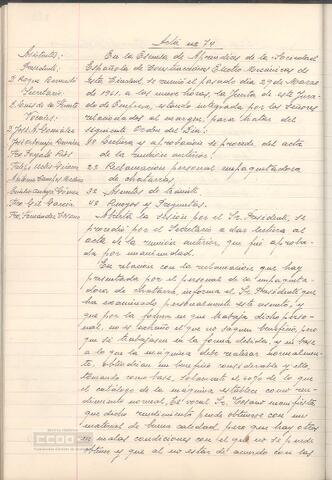 Acta nº 74
Asistentes:
Presidente:
D. Roque Barrueto
Secretario:
D. Luis de la Fuente
Vocales:
José A. González
José Antonio
Fco. Gayoso
Felipe
Antonio Campos
Fco. Gil García
Fco. Fernández Corsano
En la Escuela de Aprendices de la Sociedad
Española de Construcciones Electro-Mecánicas de
esta Ciudad, se reunió el pasado día 29 de Marzo
de 1961, a las nueve horas, la Junta de este Jura-
do de Empresa, estando integrada por los Señores
relacionados al margen, para tratar del
siguiente Orden del Día:
1º Lectura y aprobación si procede, del acta
de la reunión anterior.
2º Reclamación personal empaquetadora
de chatarras.
3º Asuntos de trámite
4º Ruegos y Preguntas.
Abierta la sesión por el Sr. Presidente, se
procedió por el Secretario a dar lectura al
acta de la reunión anterior, que fué aproba-
da por unanimidad.
En relación con la reclamación que hay
presentada por el personal de la empaqueta-
dora de chatarra, informa el Sr. Presidente que
ha examinado personalmente este asunto, y
que por la forma en que trabaja dicho perso-
nal, no es extraño el que no saquen beneficio, pero
que si trabajasen en la forma debida, y en base
a lo que la máquina debe realizar normalmen-
te, obtendrían un beneficio considerable y ello
tomando como base, solamente el 50% de lo que
el catálogo de la máquina establece como ren-
dimiento normal. El vocal Sr. Corsano manifiesta
que dicho rendimiento puede obtenerse con un
material de buena calidad pero que hay otros
en malas condiciones con el que no se puede
obtener y que al no estar de acuerdo con las
CCOO